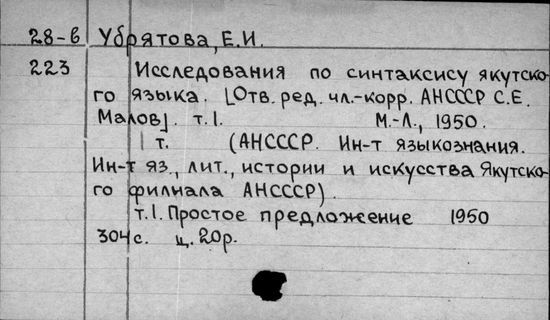 28-6 Убрятова, Е.И.
223 Исследования по синтаксису якутско-
го языка. [Отв. ред. чл.-корр. АНСССР С.Е.
Малов]. т.1. М.-Л., 1950.
1 т. (АНСССР. Ин-т языкознания.
Ин-т яз., лит., истории и искусства Якутско-
го филиала АНСССР).
т.1. Простое предложение 1950
304 с. ц. 20р.